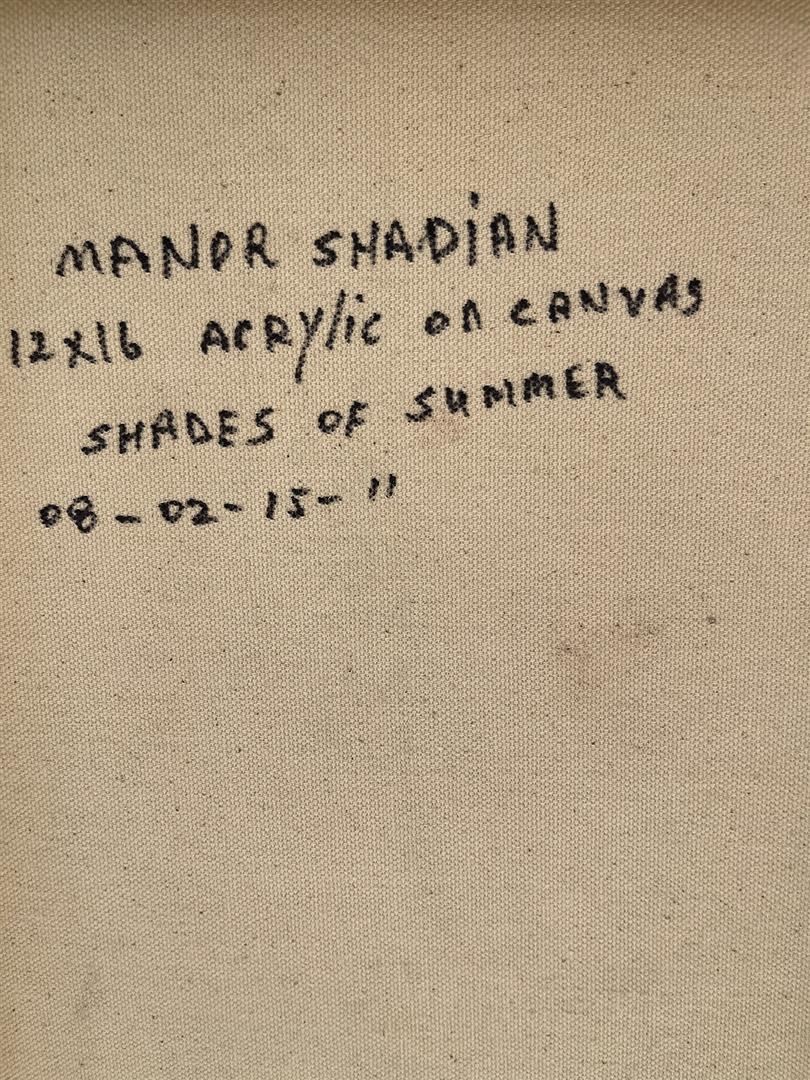 MANOR SHADiAN
12x16 ACRYlic on CANVAS
SHADES OF SUMMER
08-02-15-"